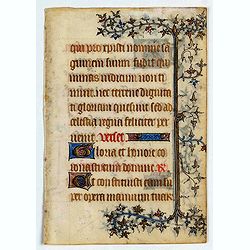 qui pro xpisti nomine sa
guinem suum fudit
minas
nec terrene dignita
tis gloriam quesivit sed ad
celestia regna feliciter per
venit. verset
Gloria et honore co
ronasti eum domine. R
Et constituisti eum su
per opera manuum tuar